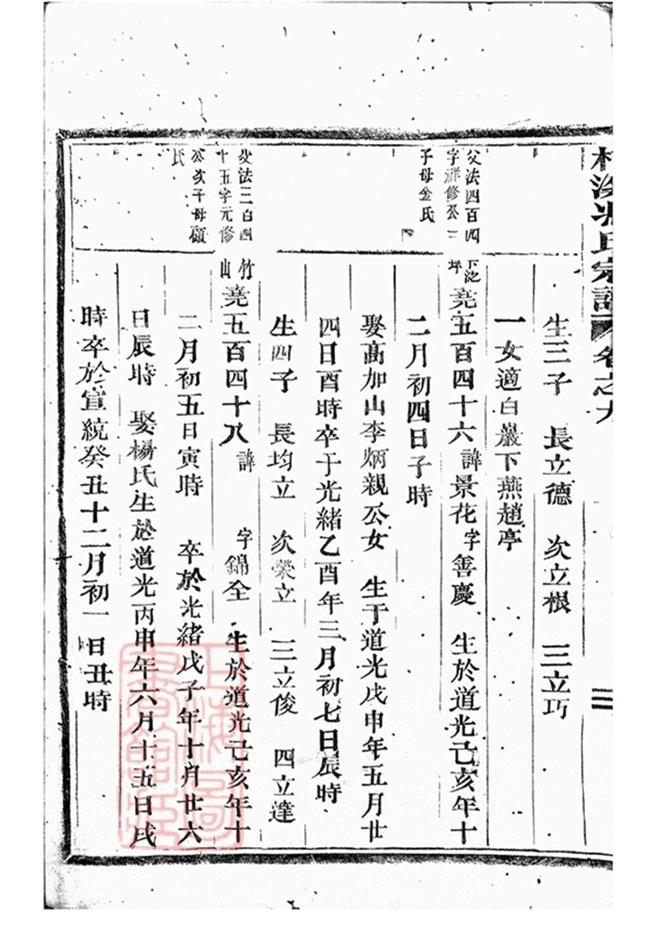 氏宗譜 卷之九
生三子 長立德 次立根 三立巧
一女適白巖下燕趙亭
父法四百四
字祥修公三
子母金氏
堯五百四十六 諱景花 字善慶 生於道光己亥年十
二月初四日子時
娶高加山李炳親公女 生于道光戊申年五月廿
四日酉時卒于光緒乙酉年三月初七日辰時
生四子 長均立 次榮立 三立俊 四立達
父法三百四
十五字元修
公次子母顧
氏
竹山
堯五百四十八 諱 字錦全 生於道光己亥年十
二月初五日寅時 卒於光緒戊子年十月廿六
日辰時 娶楊氏生於道光丙申年六月十五日戌
時卒於宣統癸丑十二月初一日丑時